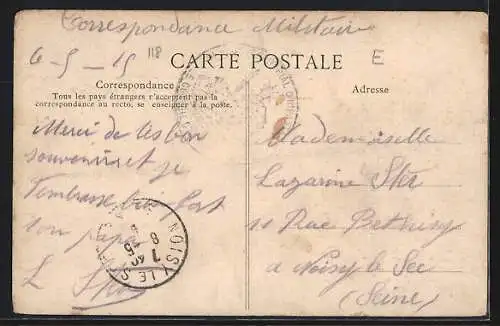 Correspondance Militaire
6-5-15 118
CARTE POSTALE E
Correspondance
Tous les pays étrangers n'acceptent pas la
correspondance au recto, se enseigner à la poste.
Adresse
Merci de les bon
souvenir et je
t'embrasse bien fort
ton papa
L
NOISY-LE-SEC
8
Mademoiselle
Lazarine
11 Rue
a Noisy le Sec
(Seine)